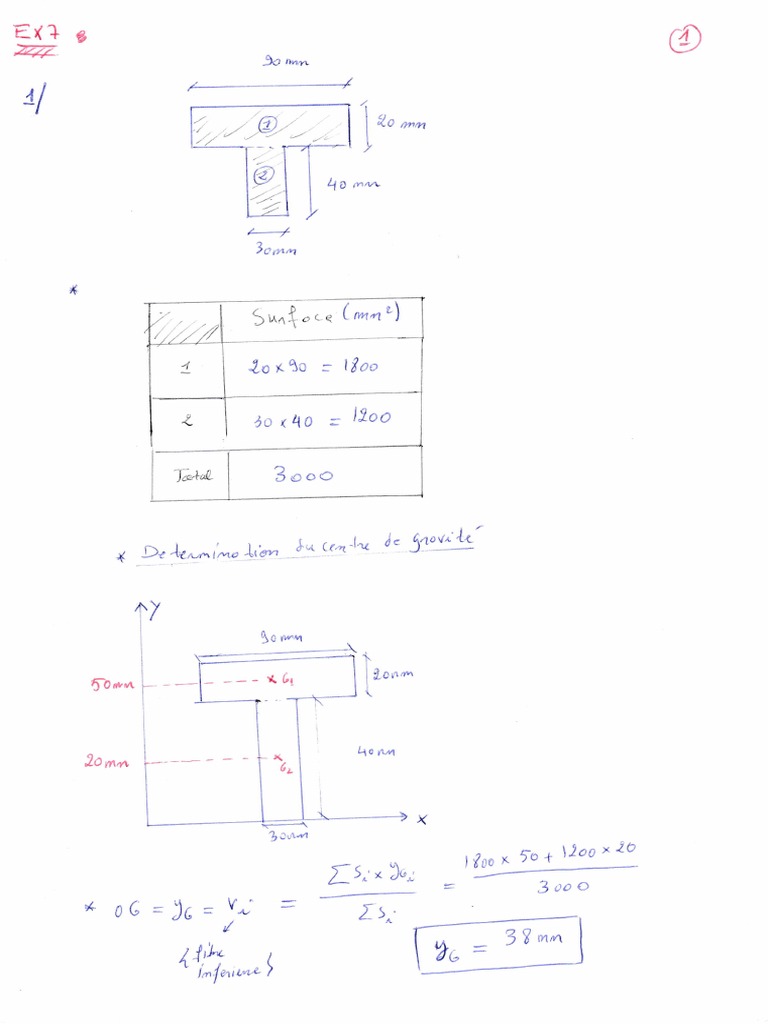 EX7
1
1/
90 mm
1
20 mm
2
40 mm
30mm
*
Surface (mm²)
1 20 × 90 = 1800
2 30 × 40 = 1200
Total 3000
* Determination du centre de gravité
Y
90mm
50mm G1 20mm
40mm
20mm G2
X
30mm
* OG = yG = Vi = ΣSi × yGi / ΣSi = 1800 × 50 + 1200 × 20 / 3000
{fibre
inferieure}
yG = 38 mm